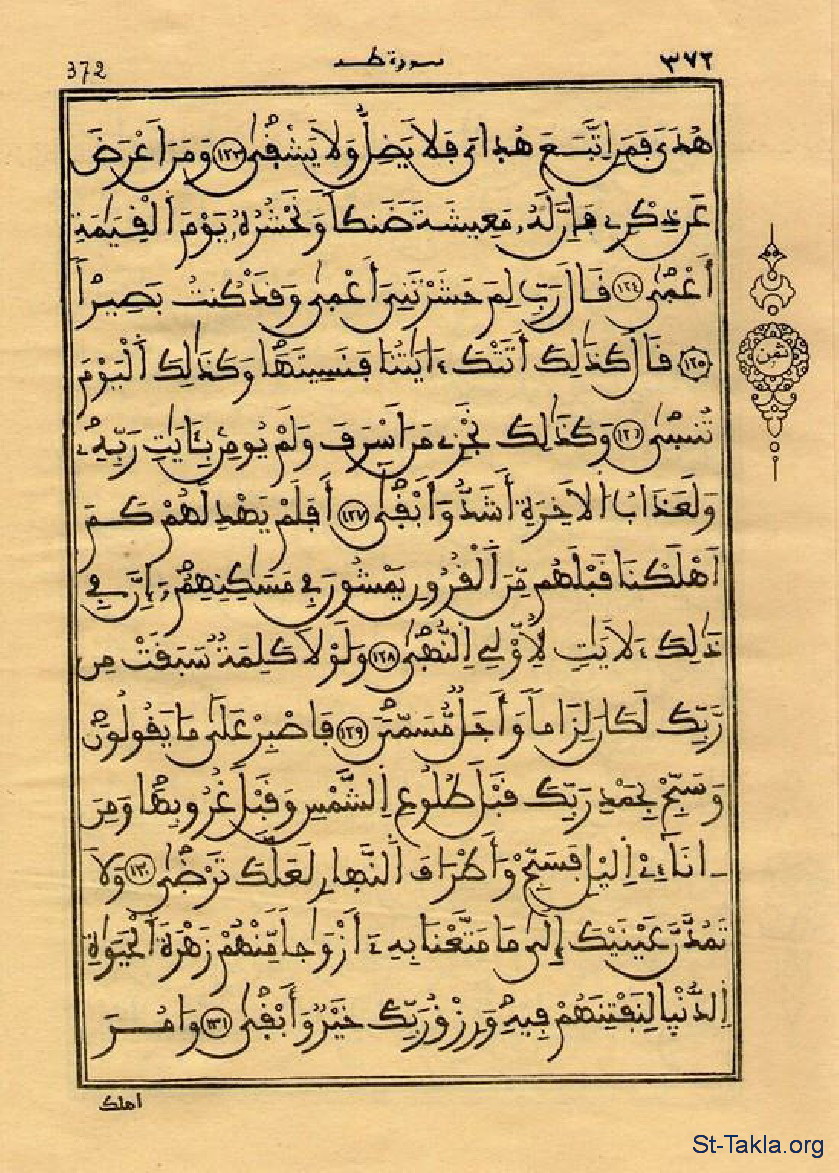 ٣٧٢ سورة طه 372
هُدىً فَمَنِ اِتَّبَعَ هُد۪ايَ فَلَا يَضِلُّ وَلَا يَشْڧ۪ىٰ ١٢٣ وَمَنَ اَعْرَضَ
عَن ذِكْرِے فَإِنَّ لَهُۥ مَعِيشَةٗ ضَنكاٗ وَنَحْشُرُهُۥ يَوْمَ اَ۬لْفِيَٰمَةِ
أَعْم۪ىٰ ١٢٤ قَالَ رَبِّ لِمَ حَشَرْتَنِيَ أَعْم۪ىٰ وَقَدْ كُنتُ بَصِيراٗ
١٢٥ قَالَ كَذَٰلِكَ أَتَتْكَ ءَايَٰتُنَا فَنَسِيتَهَا وَكَذَٰلِكَ اَ۬لْيَوْمَ
تُنس۪ىٰ ١٢٦ وَكَذَٰلِكَ نَجْزِے مَنَ اَسْرَفَ وَلَمْ يُومِنۢ بِـَٔايَٰتِ رَبِّهِۦ
وَلَعَذَابُ اُ۬لَاخِرَةِ أَشَدُّ وَأَبْق۪ىٰ ١٢٧ أَفَلَمْ يَهْدِ لَهُمْ كَمَ
اَهْلَكْنَا قَبْلَهُم مِّنَ اَ۬لْقُرُونِ يَمْشُونَ فِے مَسَٰكِنِهِمُۥٓ إِنَّ فِے
ذَٰلِكَ ءَلَايَٰتٖ لِّأُوْلِے اِ۬لنُّه۪ىٰ ١٢٨ وَلَوْلَا كَلِمَةٞ سَبَقَتْ مِن
رَّبِّكَ لَكَانَ لِزَاماٗ وَأَجَلٞ مُّسَمّىٗ ١٢٩ فَاصْبِرْ عَلَىٰ مَا يَقُولُونَ
وَسَبِّحْ بِحَمْدِ رَبِّكَ قَبْلَ طُلُوعِ اِ۬لشَّمْسِ وَقَبْلَ غُرُوبِهَا وَمِنَ
اٰنَآءِےْ اِ۬ليْلِ فَسَبِّحْ وَأَطْرَافَ اَ۬لنَّه۪ارِ لَعَلَّكَ تَرْض۪ىٰ ١٣٠ وَلَا
تَمُدَّنَّ عَيْنَيْكَ إِلَىٰ مَا مَتَّعْنَا بِهِۦٓ أَزْوَٰجاٗ مِّنْهُمْ زَهْرَةَ اَ۬لْحَيَوٰةِ
اِ۬لدُّنْي۪ا لِنَفْتِنَهُمْ فِيهِ وَرِزْقُ رَبِّكَ خَيْرٞ وَأَبْق۪ىٰ ١٣١ وَامُرَ
اهلك
ثمن
St-Takla.org